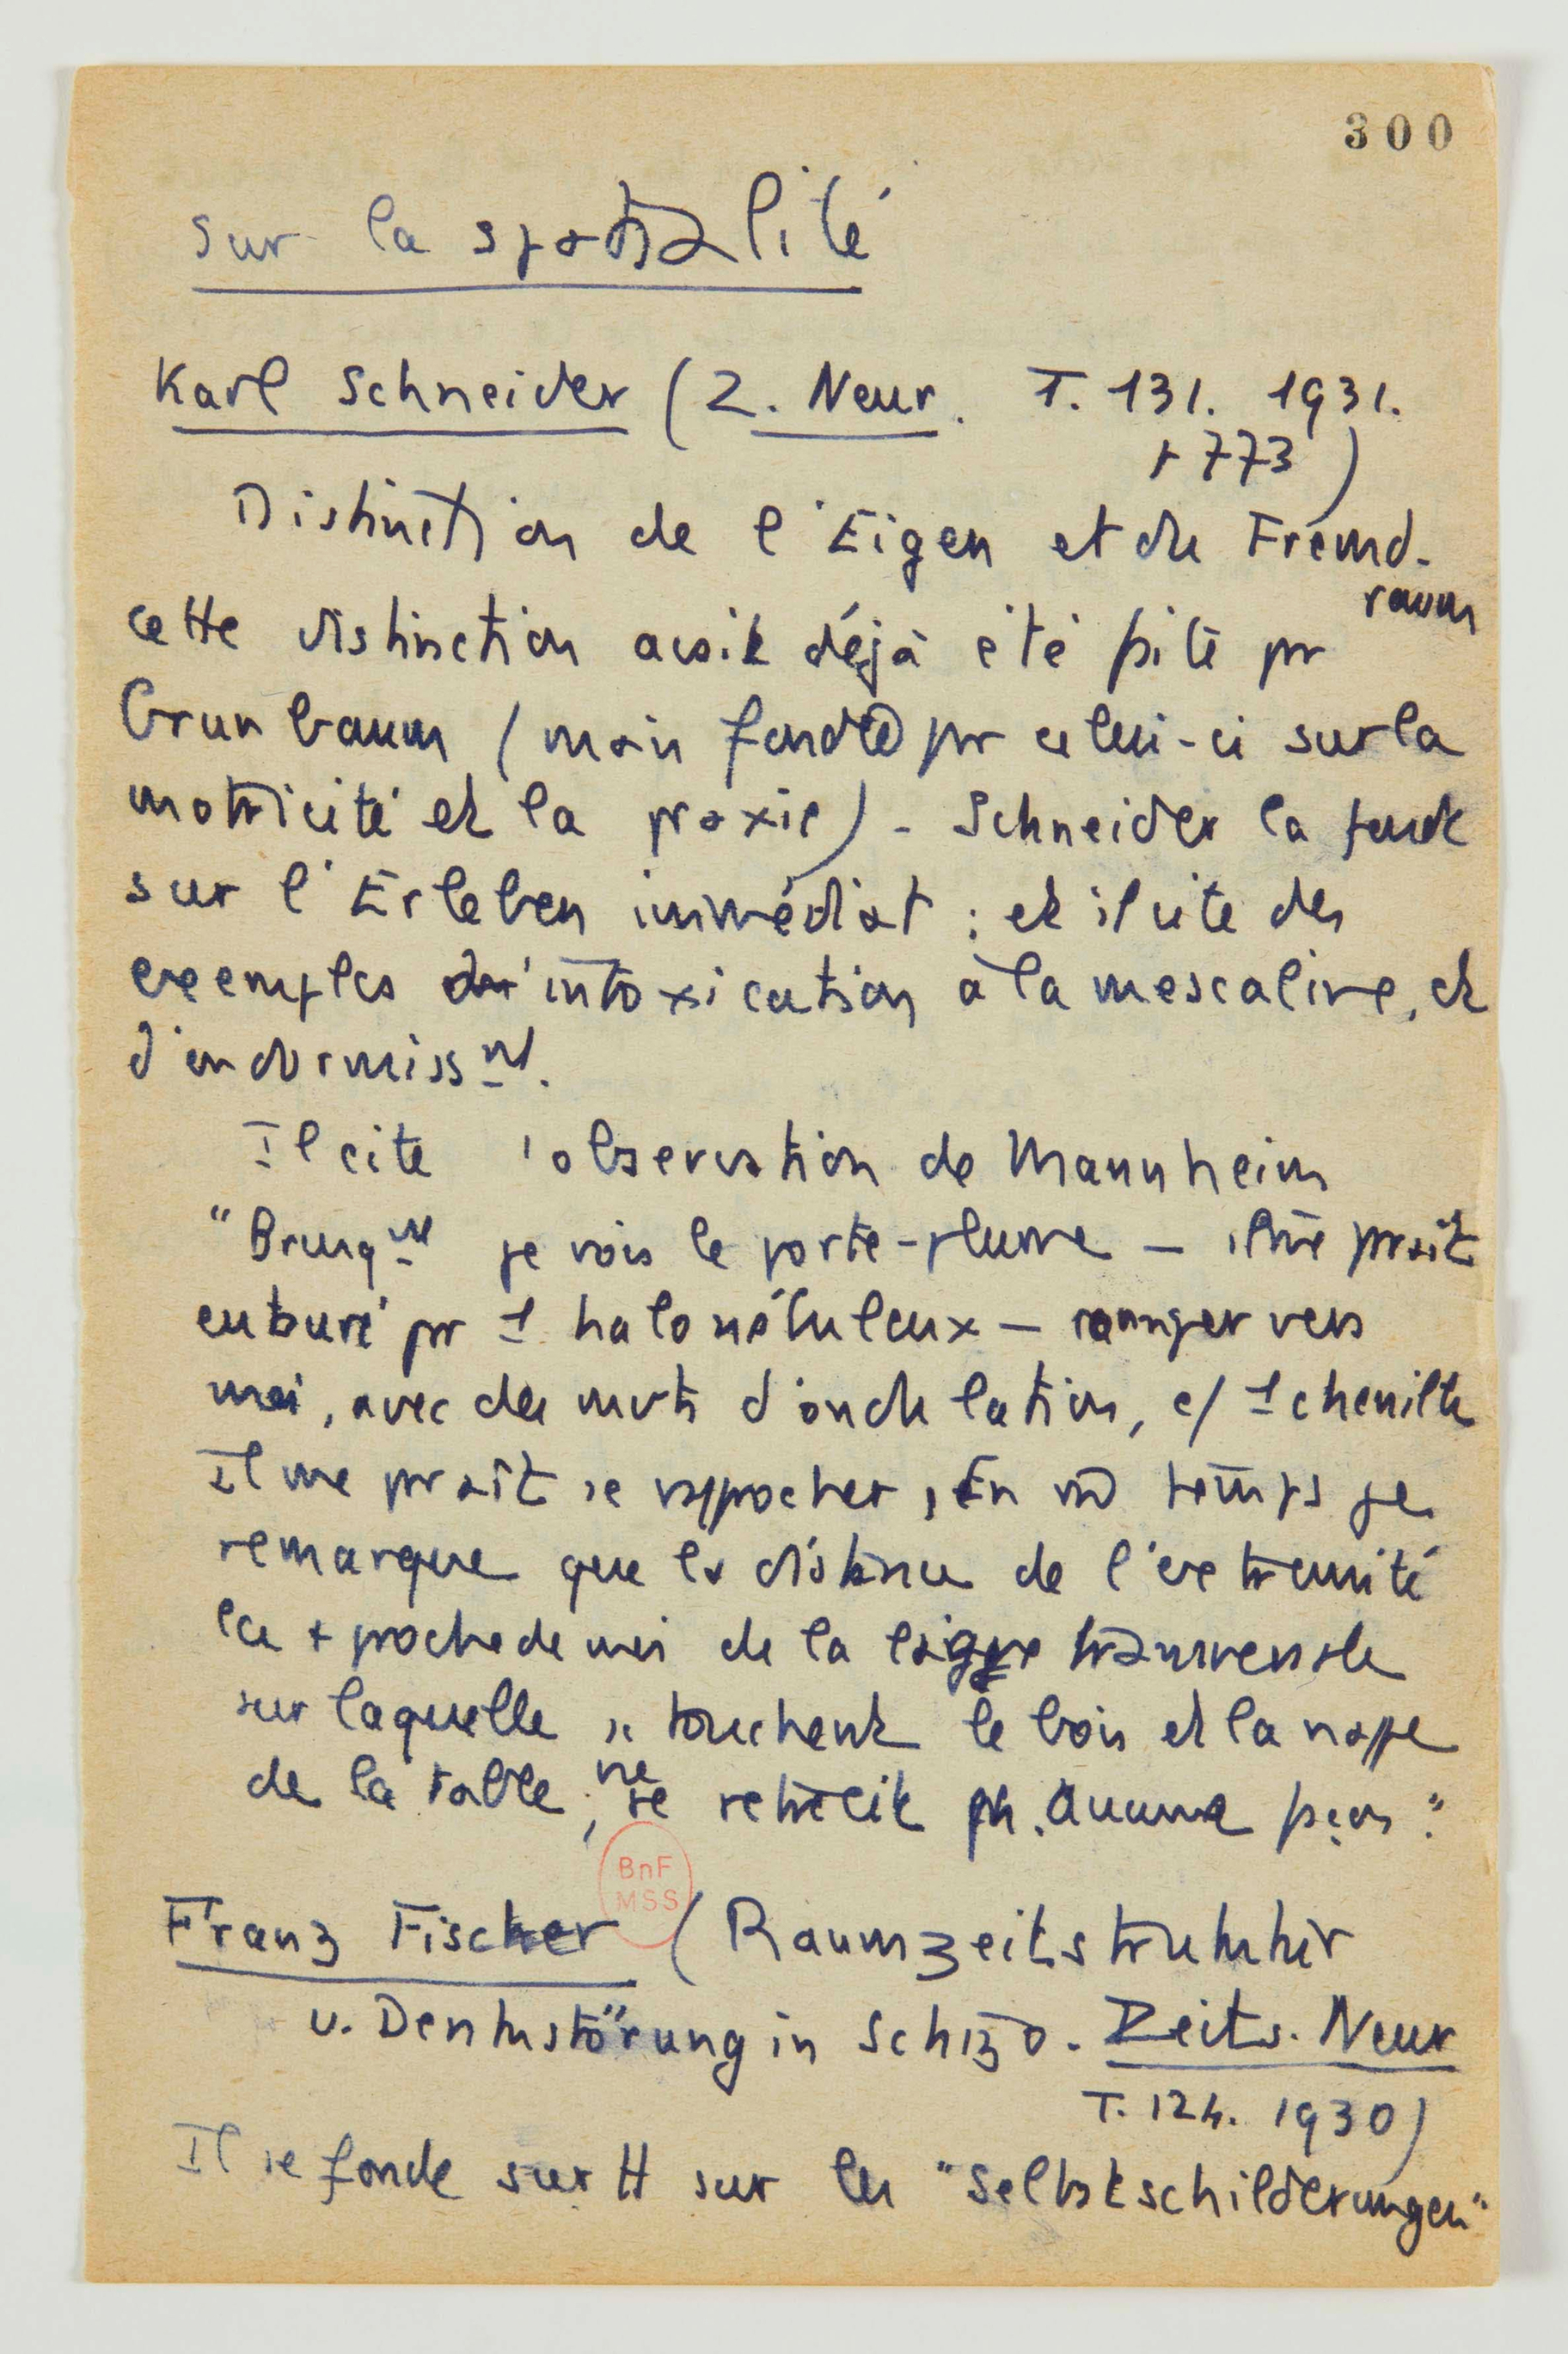 300
Sur la spatialité
Karl Schneider (Z. Neur. T. 131. 1931.
p 773)
Distinction de l'Eigen et du Fremd-
raum
cette distinction avait déjà été faite pr
Grunbaum (mais fondée pr celui-ci sur la
motricité et la praxie) - Schneider la fonde
sur l'Erleben immédiat : et il cite des
exemples d'intoxication à la mescaline, et
d'endormissnt.
Il cite l'observation de Mannheim
"Brusqnt je vois le porte-plume — il me prait
entouré pr 1 halo nébuleux — ramper vers
moi, avec des mvts d'ondulation, c/ 1 chenille
Il me prait se rapprocher, En m̄ temps je
remarque que la distance de l'extrémité
la + proche de moi de la ligne transversale
sur laquelle se touchent le bois et la nappe
de la table, ne se rétrécit en aucune façon."
BnF
MSS
Franz Fischer (Raumzeitstruktur
u. Denkstörung in Schizo. Zeits. Neur
T. 124. 1930)
Il se fonde surtt sur les "Selbstschilderungen"